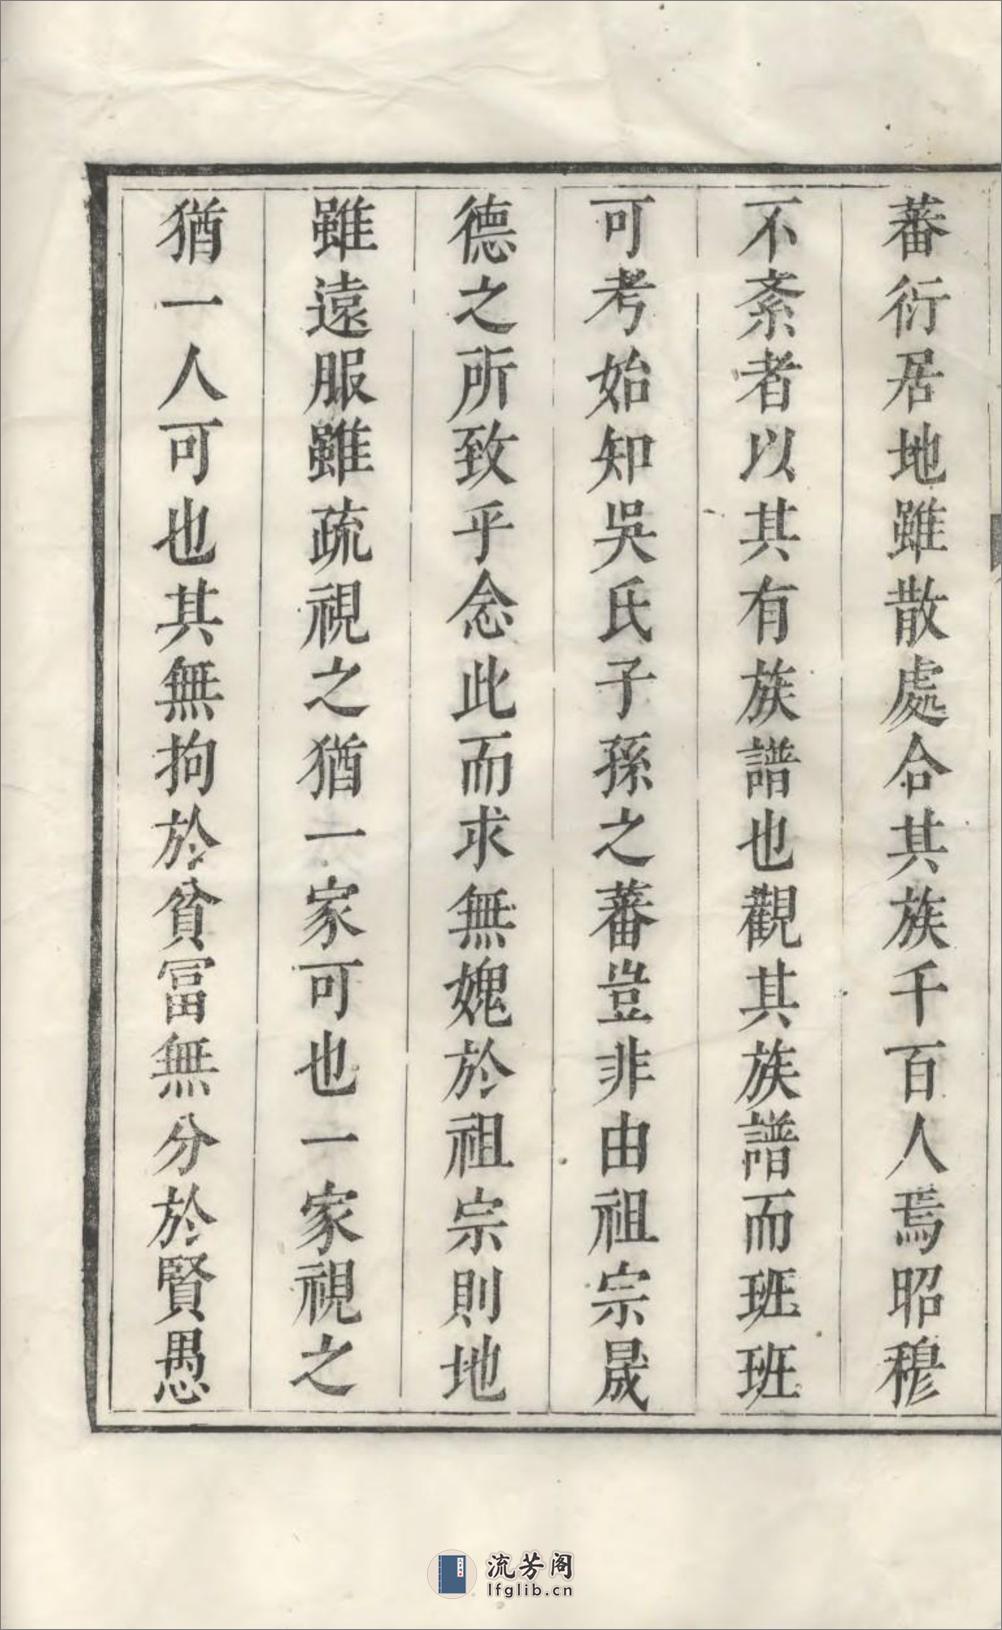 蕃衍居地雖散處合其族千百人焉昭穆
不紊者以其有族譜也觀其族譜而班班
可考始知吳氏子孫之蕃豈非由祖宗晟
德之所致乎念此而求無媿於祖宗則地
雖遠服雖疏視之猶一家可也一家視之
猶一人可也其無拘於貧冨無分於賢愚
流芳阁
lfglib.cn